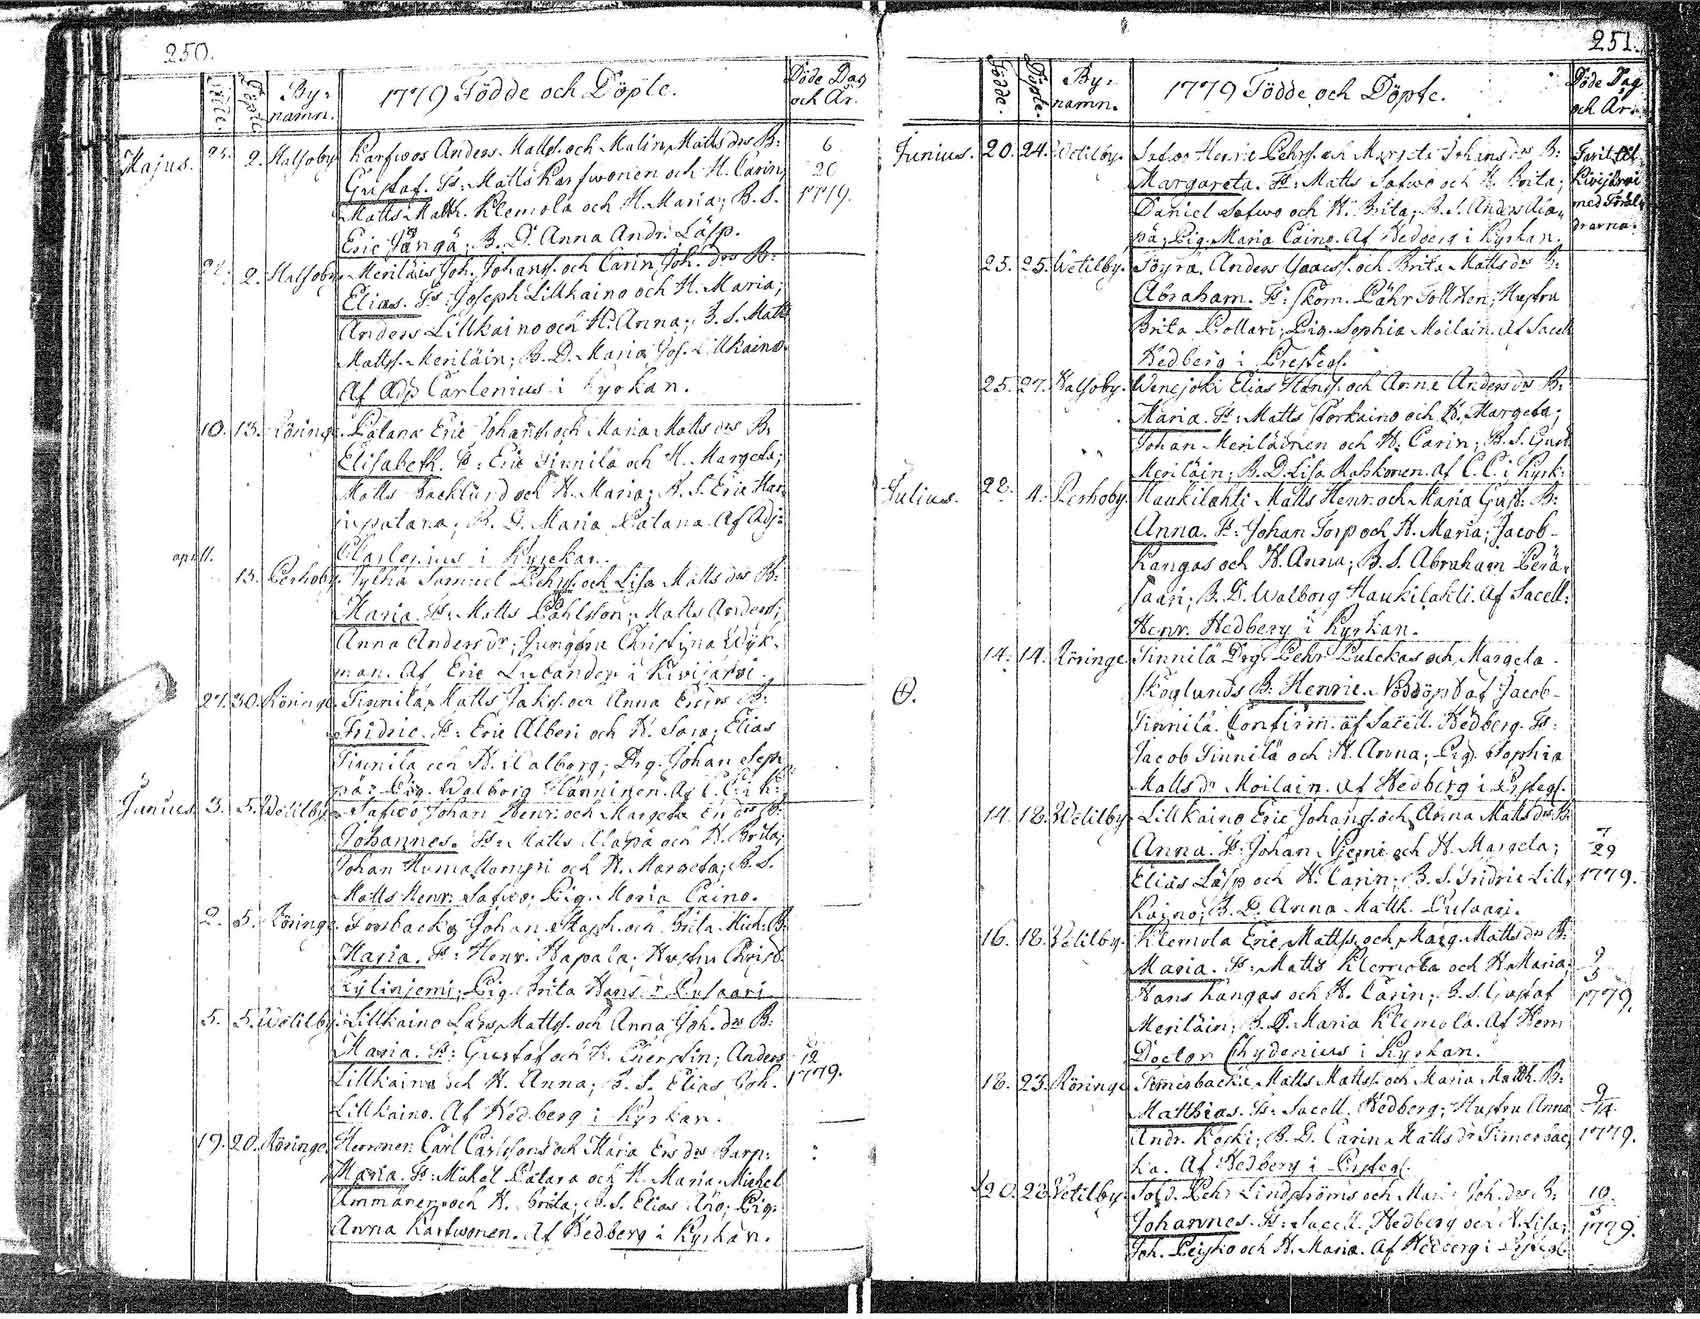 250.
Födde. Döpte. By- namn. 1779 Födde och Döpte. Döde Dag och År.
Majus. 2. Halsoby. Karfwos Anders Matts. och Malin Matts dr B:
Gustaf. Fs: Matts Karfwonen och H. Carin;
Matts Matth. Klemola och H. Maria; B. S.
Eric Jånga; B. D. Anna Andr. Läsp.
6
20
1779.
2. Halsoby. Meriläis Joh. Johans. och Carin Joh. dr B:
Elias. Fs: Joseph Lillkaino och H. Maria;
Anders Lillkaino och H. Anna; B. S. Matts
Matts. Meriläin; B. D. Maria Jos. Lillkaino.
Af Adj. Carlenius i Kyrkan.
10. 13. Röringe. Patana Eric Johans. och Maria Matts dr B:
Elisabeth. Fs: Eric Tinnilä och H. Margeta;
Matts Backlund och H. Maria; B. S. Eric Har-
jupatana; B. D. Maria Patana. Af Adj:
Carlenius i Kyrckan.
april.
13. Perhoby. Lisa Matts dr B:
Maria. Fs: Matts Pählsson; Matts Anders;
Anna Anders dr; Jungfru Christina Wyk-
man. Af Eric Lubander i Kivijärvi.
27. 30. Röringe. Tinnilä Matts Jaks. och Anna Erics B:
Fridric. Fs: Eric Alberi och H. Sara; Elias
Tinnilä och H. Walborg; Drg. Johan Sep-
pä; Pig. Walborg Hänninen. Af C. C. i K:
Junius 3. 5. Wetilby. Safwo Johan Henr. och Margeta Er. dr B:
Johannes. Fs: Matts Alapä och H. Brita;
Johan och H. Margeta; B. S.
Matts Henr. Safwo; Pig. Maria Caino.
2. 5. Röringe. Johan Staph. och Brita Mich. B:
Maria. Fs: Henr. Hapala; Hustru Christ.
Kylinjemi; Pig. Brita Hans dr Pulsaari
5. 5. Wetilby. Lillkaino Lars Matts. och Anna Joh. dr B:
Maria. Fs: Gustaf och H. Cherstin; Anders
Lillkaino och H. Anna; B. S. Elias Joh.
Lillkaino. Af Hedberg i Kyrkan.
12
1779.
19. 20. Röringe. Carl Carlssons och Maria Ers dr Barp:
Maria. Fs: Mickel Patana och H. Maria; Mickel
Ammänen och H. Brita; B. S. Elias Äno; Pig:
Anna Karfwonen. Af Hedberg i Kyrkan.
251.
Födde. Döpte. By- namn. 1779 Födde och Döpte. Döde Dag och År.
Junius. 20. 24. Wetilby. Safwo Henric Pehrs. och Margeta Johans dr B:
Margareta. Fs: Matts Safwo och H. Brita;
Daniel Safwo och H. Brita; B. S. Anders Ala-
pä; Pig. Maria Caino. Af Hedberg i Kyrkan.
Farit til
Kivijärvi
med Förel-
drarna.
25. 25. Wetilby. Töyrä Anders Isacs. och Brita Matts dr B:
Abraham. Fs: Skom. Pähr Tollsten; Hustru
Brita Pollari; Pig. Sophia Moilain. Af Sacell
Hedberg i Prestegs.
25. 27. Halsoby. Wenejoki Elias Hans. och Anna Anders dr B:
Maria. Fs: Matts Torkaino och H. Margeta;
Johan Meriläinen och H. Carin; B. S. Gust.
Meriläin; B. D. Lisa Rahkonen. Af C. C. i Kyrk:
Julius. 28. 4. Perhoby. Haukilahti Matts Henr. och Maria Gust. B:
Anna. Fs: Johan Torp och H. Maria; Jacob
Kangas och H. Anna; B. S. Abraham Perä-
saari; B. D. Walborg Haukilahti. Af Sacell:
Henr. Hedberg i Kyrkan.
14. 14. Röringe. Tinnilä Drg. Pehr Pulckas och Margeta
Skoglunds B: Henric. Nöddöpt af Jacob
Tinnilä. Confirm. af Sacell. Hedberg. Fs:
Jacob Tinnilä och H. Anna; Pig. Sophia
Matts dr Moilain. Af Hedberg i Prstegs.
14. 18. Wetilby. Lillkaino Eric Johans. och Anna Matts dr B:
Anna. Fs: Johan Niemi och H. Margeta;
Elias Läsp och H. Carin; B. S. Fridric Lill-
kaino; B. D. Anna Matth. Pulsaari.
7
29
1779.
16. 18. Vetilby. Klemola Eric Matts. och Marg. Matts dr B:
Maria. Fs: Matts Klemola och H. Maria;
Hans Kangas och H. Carin; B. S. Gustaf
Meriläin; B. D. Maria Klemola. Af Herr
Doctor Chydenius i Kyrkan.
9
5
1779.
18. 23. Röringe. Timerbacka Matts Matts. och Maria Matth. B:
Matthias. Fs: Sacell. Hedberg; Hustru Anna
Andr. Koski; B. D. Carin Matts dr Timerbac-
ka. Af Hedberg i Prstegs.
9
14.
1779.
20. 23. Vetilby. Sold. Pehr Lindströms och Maria Joh. dr B:
Johannes. Fs: Sacell. Hedberg och H. Lisa;
Joh. Peisko och H. Maria. Af Hedberg i Prstegs.
10.
5
1779.